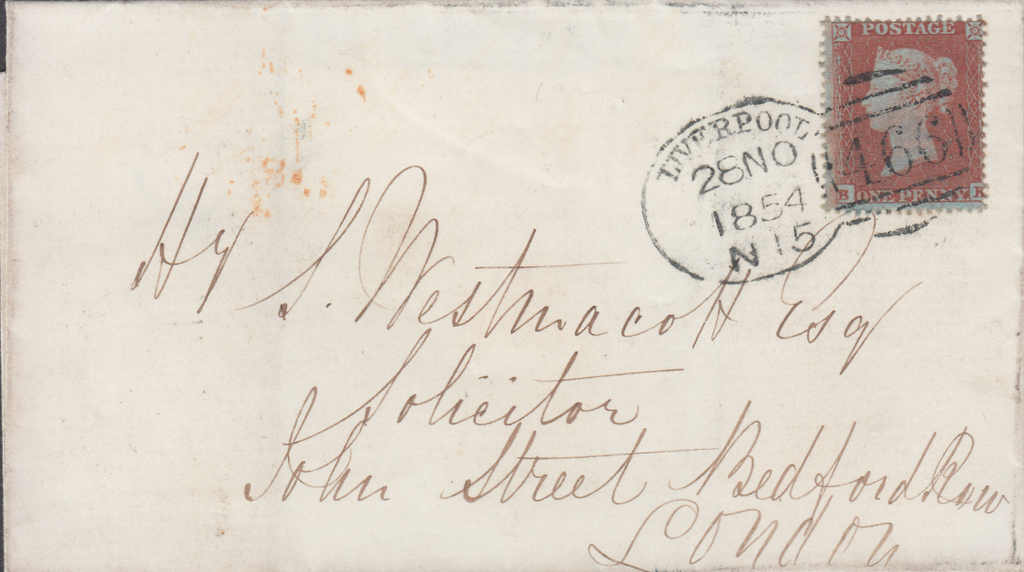 POSTAGE
LIVERPOOL
28 NO
1854
N 15
466
B ONE PENNY K
Hy S. Westmacott Esq
Solicitor
John Street Bedford Row
London